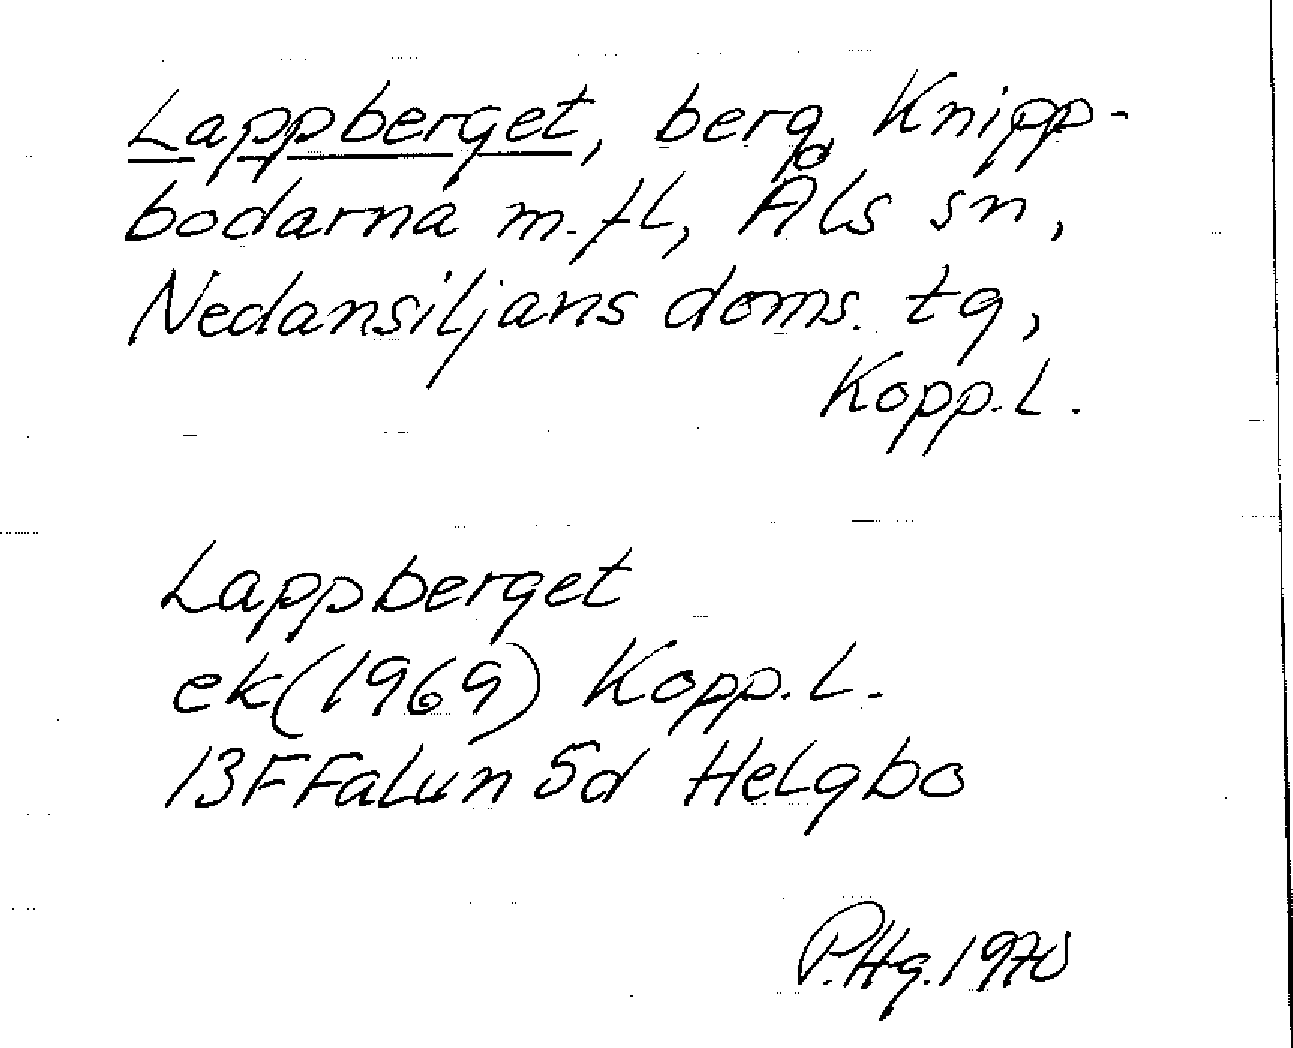 Lappberget, berg, Knipp-
bodarna m.fl, Åls sn,
Nedansiljans doms. tg,
Kopp.L.
Lappberget
ek(1969) Kopp.L.
13F Falun 5d Helgbo
P.Hg.1970